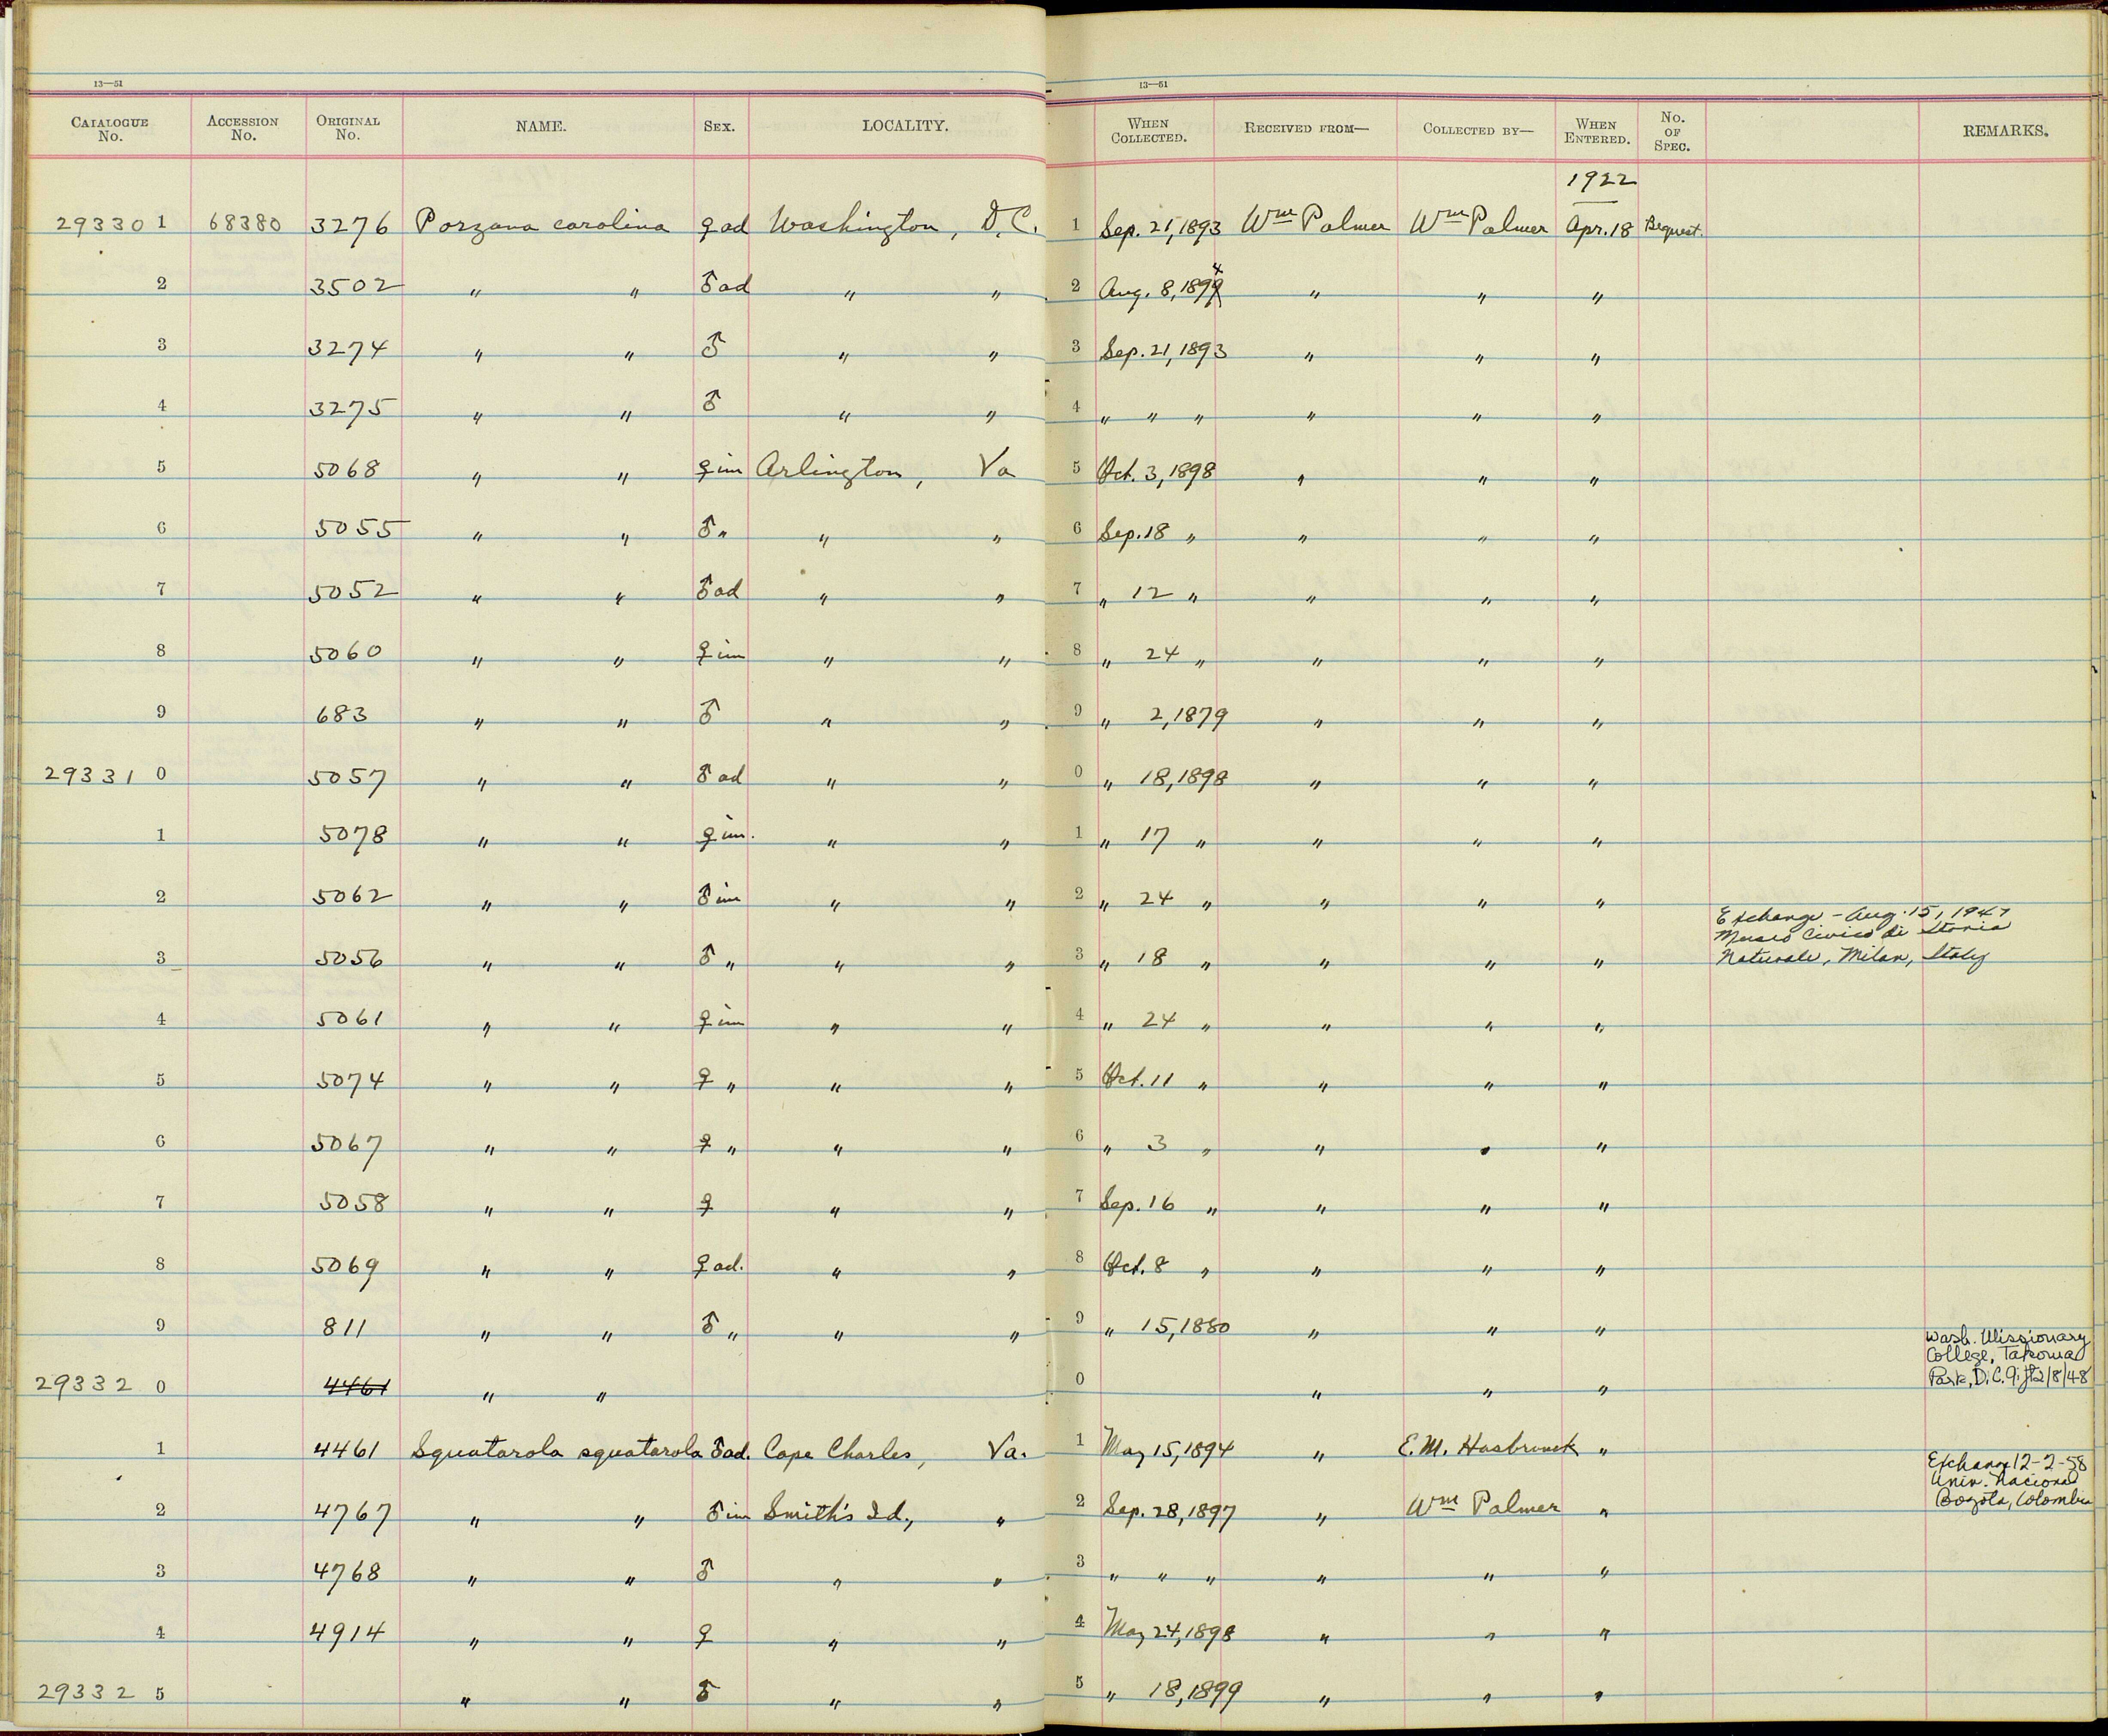 13—51 13—51
CATALOGUE No. ACCESSION No. ORIGINAL No. NAME. SEX. LOCALITY. WHEN COLLECTED. RECEIVED FROM— COLLECTED BY— WHEN ENTERED. No. OF SPEC. REMARKS.
1922
29330 1 68380 3276 Porzana carolina ♀ ad Washington, D.C. 1 Sep. 21, 1893 Wm Palmer Wm Palmer Apr. 18 Bequest.
2 3502 " " ♂ ad " " 2 Aug. 8, 1894 " " "
3 3274 " " ♂ " " 3 Sep. 21, 1893 " " "
4 3275 " " ♂ " " 4 " " " " " "
5 5068 " " ♀ im Arlington, Va 5 Oct. 3, 1898 " " "
6 5055 " " ♂ " " " 6 Sep. 18 " " " "
7 5052 " " ♂ ad " " 7 " 12 " " " "
8 5060 " " ♀ im " " 8 " 24 " " " "
9 683 " " ♂ " " 9 " 2, 1879 " " "
29331 0 5057 " " ♂ ad " " 0 " 18, 1898 " " "
1 5078 " " ♀ im. " " 1 " 17 " " " "
2 5062 " " ♂ im " " 2 " 24 " " " "
Exchange - Aug. 15, 1947
Museo Civico di Storia
3 5056 " " ♂ " " " 3 " 18 " " " " Naturale, Milan, Italy
4 5061 " " ♀ im " " 4 " 24 " " " "
5 5074 " " ♀ " " " 5 Oct. 11 " " " "
6 5067 " " ♀ " " " 6 " 3 " " " "
7 5058 " " ♀ " " 7 Sep. 16 " " " "
8 5069 " " ♀ ad. " " 8 Oct. 8 " " " "
9 811 " " ♂ " " " 9 " 15, 1880 " " "
Wash. Missionary
College, Takoma
29332 0 4461 " " 0 " " " Park, D.C. Gift 2/8/48
1 4461 Squatarola squatarola ♂ ad. Cape Charles, Va. 1 May 15, 1894 " E.M. Hasbrouck "
Exchange 12-2-58
Univ. Nacional
Bogota, Colombia
2 4767 " " ♂ im Smith's Id., " 2 Sep. 28, 1897 " Wm Palmer "
3 4768 " " ♂ " " 3 " " " " " "
4 4914 " " ♀ " " 4 May 24, 1898 " " "
29332 5 " " ♂ " " 5 " 18, 1899 " " "